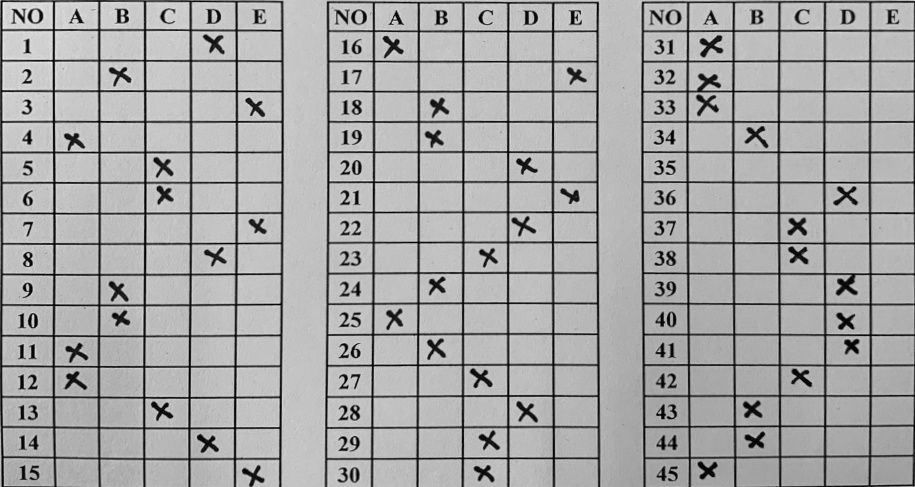 NO A B C D E
1 X
2 X
3 X
4 X
5 X
6 X
7 X
8 X
9 X
10 X
11 X
12 X
13 X
14 X
15 X
NO A B C D E
16 X
17 X
18 X
19 X
20 X
21 X
22 X
23 X
24 X
25 X
26 X
27 X
28 X
29 X
30 X
NO A B C D E
31 X
32 X
33 X
34 X
35
36 X
37 X
38 X
39 X
40 X
41 X
42 X
43 X
44 X
45 X